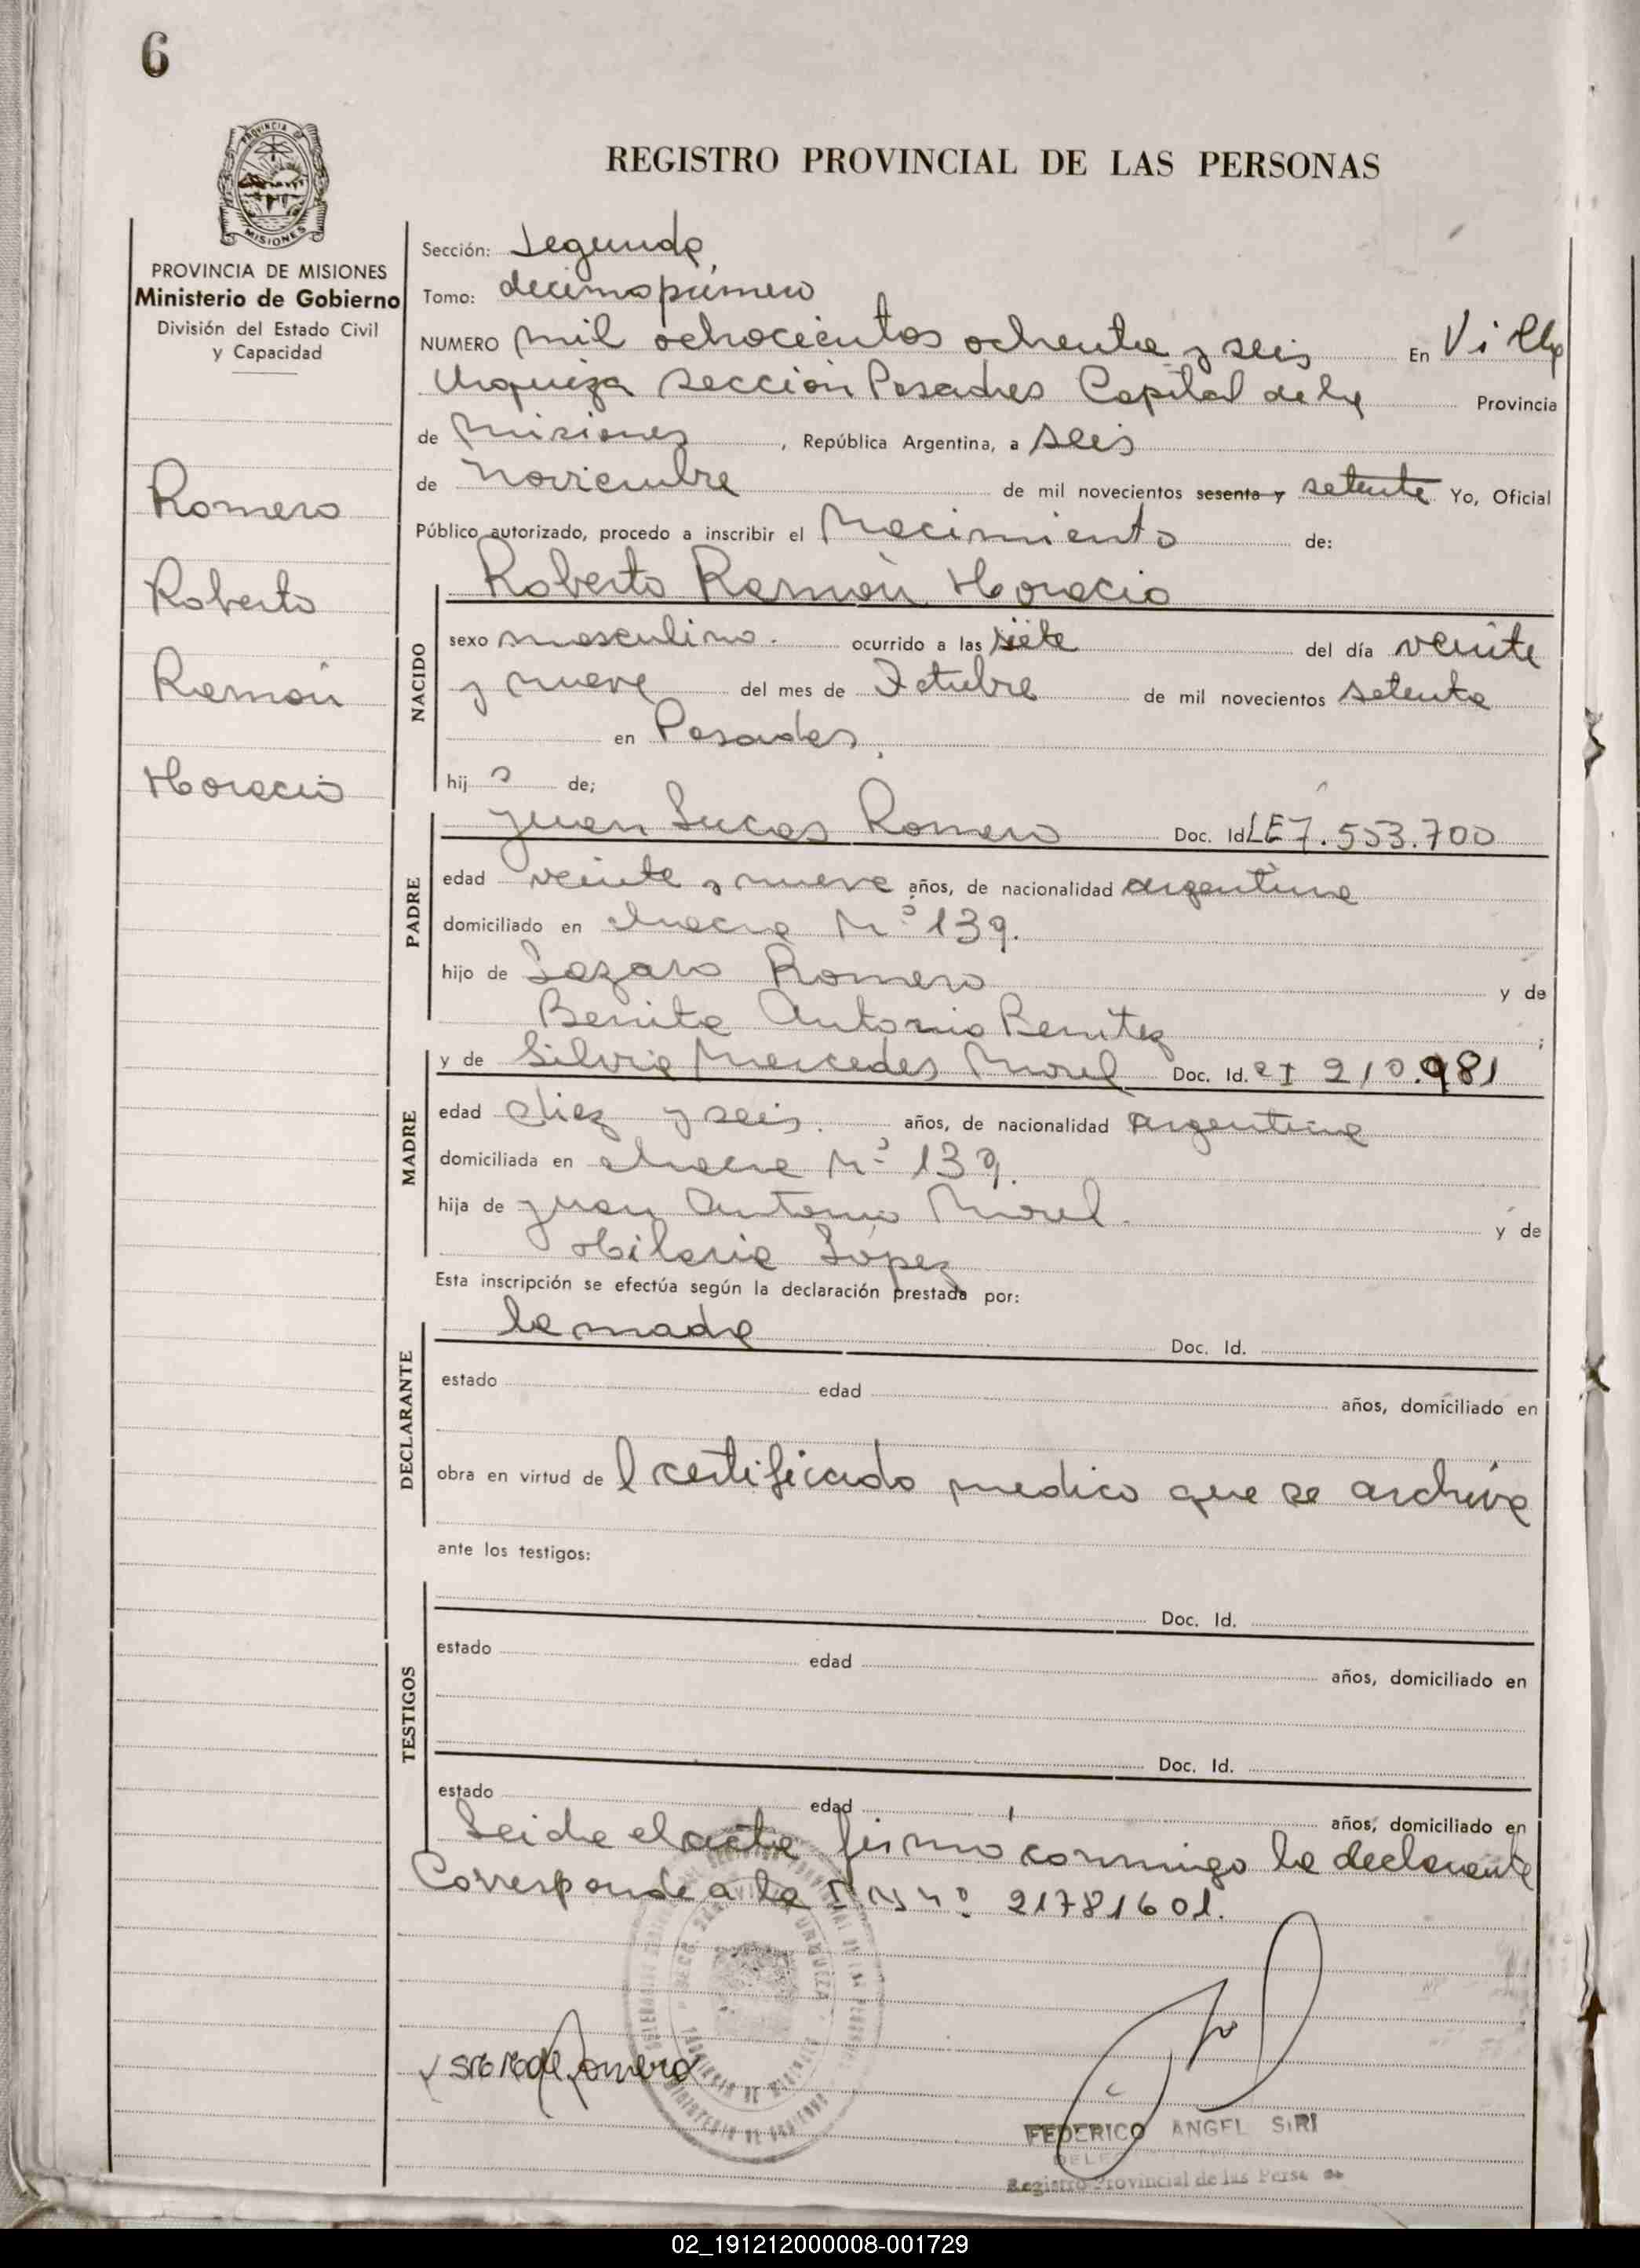 6
PROVINCIA DE
MISIONES
REGISTRO PROVINCIAL DE LAS PERSONAS
PROVINCIA DE MISIONES
Ministerio de Gobierno
División del Estado Civil
y Capacidad
Romero
Roberto
Ramón
Horacio
Sección: Segunda
Tomo: decimoprimero
NUMERO mil ochocientos ochenta y seis En Villa
Urquiza sección Posadas Capital de la Provincia
de Misiones, República Argentina, a seis
de noviembre de mil novecientos sesenta y setenta Yo, Oficial
Público autorizado, procedo a inscribir el Nacimiento de:
NACIDO
Roberto Ramón Horacio
sexo masculino. ocurrido a las siete del día veinte
y nueve del mes de Octubre de mil novecientos setenta
en Posadas.
hijo de;
PADRE
Juan Lucas Romero Doc. Id. LE 7.553.700
edad veinte y nueve años, de nacionalidad argentina
domiciliado en chacra Nº 139.
hijo de Lazaro Romero y de
Benita Antonia Benitez;
MADRE
y de Silvia Mercedes Morel Doc. Id. 210.981
edad diez y seis. años, de nacionalidad argentina
domiciliada en chacra Nº 139.
hija de Juan Antonio Morel. y de
Hilaria López
Esta inscripción se efectúa según la declaración prestada por:
DECLARANTE
la madre Doc. Id.
estado edad años, domiciliado en
obra en virtud del certificado medico que se archiva
ante los testigos:
TESTIGOS
Doc. Id.
estado edad años, domiciliado en
Doc. Id.
estado edad años, domiciliado en
Leida el acta firmó conmigo la declarante
Corresponde a la nº 21781601.
Romero
FEDERICO ANGEL SIRI
Registro Provincial de las Personas
02_191212000008-001729